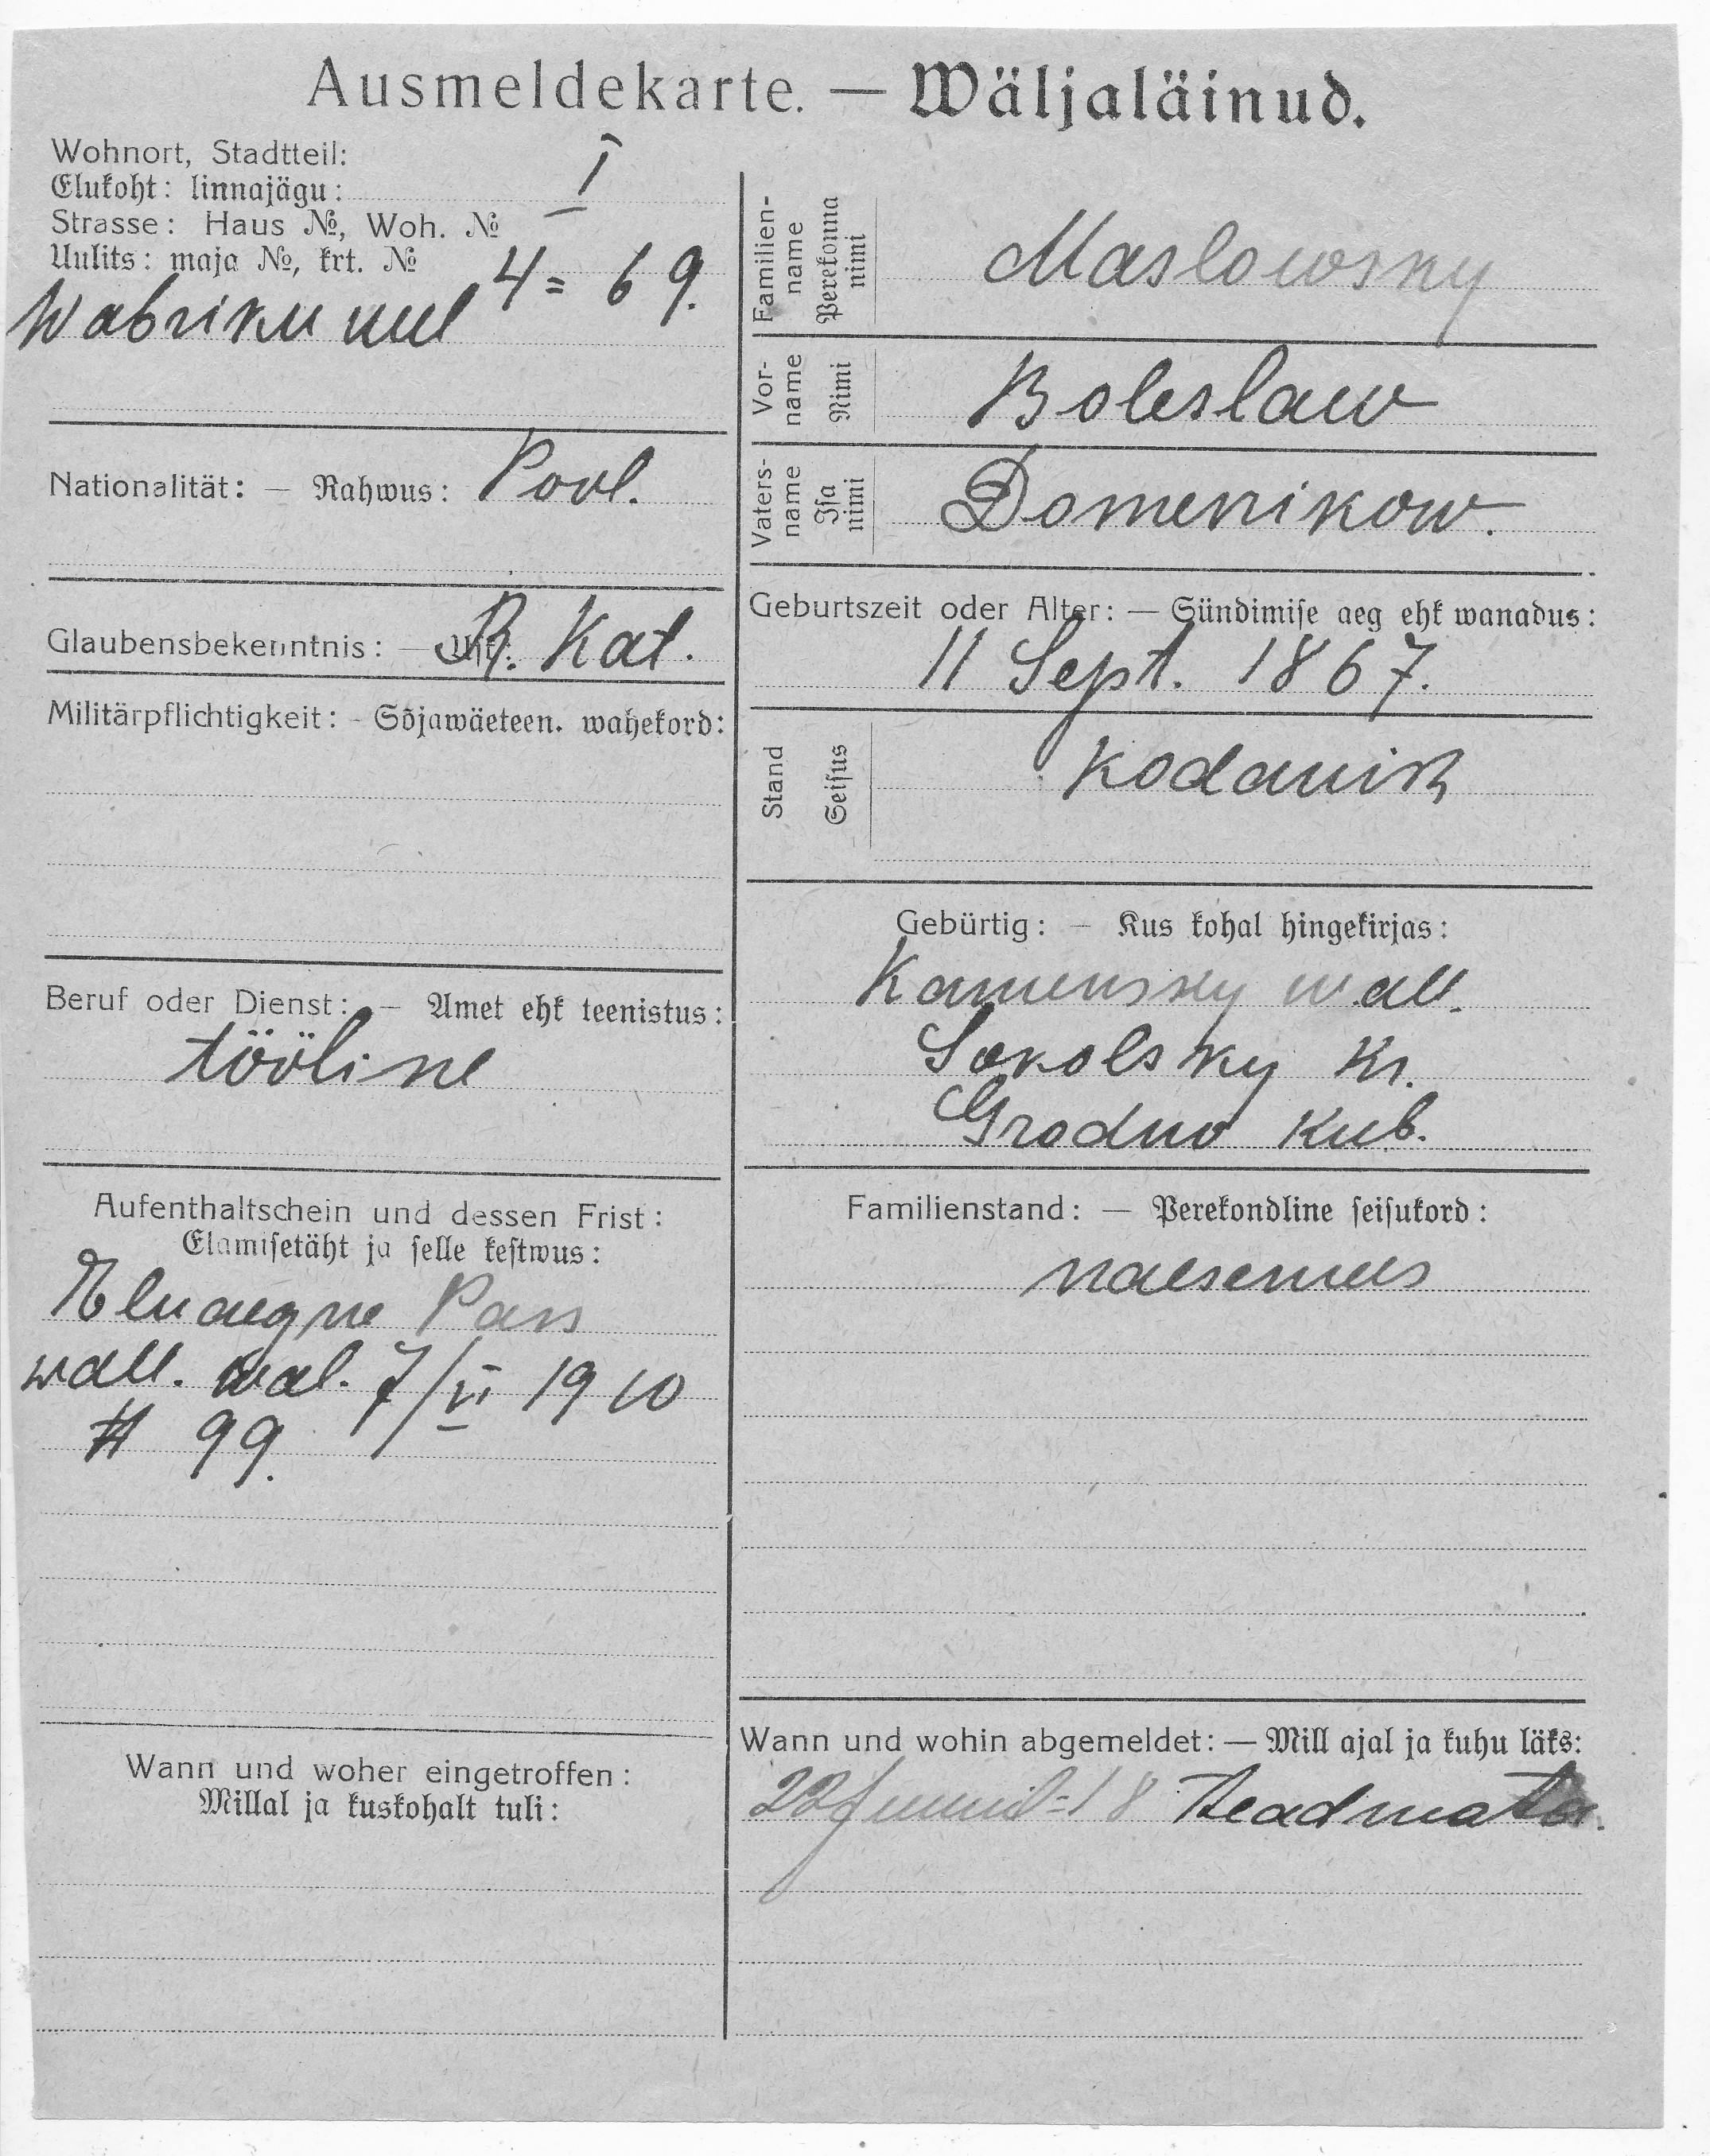 Ausmeldekarte. — Wäljaläinud.
Wohnort, Stadtteil:
Elukoht: linnajägu: I
Strasse: Haus №, Woh. №
Uulits: maja №, krt. № 4 = 69.
Wabriku uul
Nationalität: — Rahwus: Pool.
Glaubensbekenntnis: — Usk: R. Kat.
Militärpflichtigkeit: - Sõjawäeteen. wahekord:
Beruf oder Dienst: — Amet ehk teenistus:
tööline
Aufenthaltschein und dessen Frist:
Elamisetäht ja selle kestwus:
Eluaegne Pass
wall. wal. 7/VI 1910
# 99.
Wann und woher eingetroffen:
Millal ja kuskohalt tuli:
Familien-
name
Perekonna
nimi
Maslowsky
Vor-
name
Nimi
Boleslaw
Vaters-
name
Isa
nimi
Domenikow.
Geburtszeit oder Alter: — Sündimise aeg ehk wanadus:
11 Sept. 1867.
Stand
Seisus
Kodanik
Gebürtig: — Kus kohal hingekirjas:
Kamensky wall.
Sokolsky Kr.
Grodno Kub.
Familienstand: — Perekondline seisukord:
naesemees
Wann und wohin abgemeldet: — Mill ajal ja kuhu läks:
22 Juunil = 18 Teadmata.